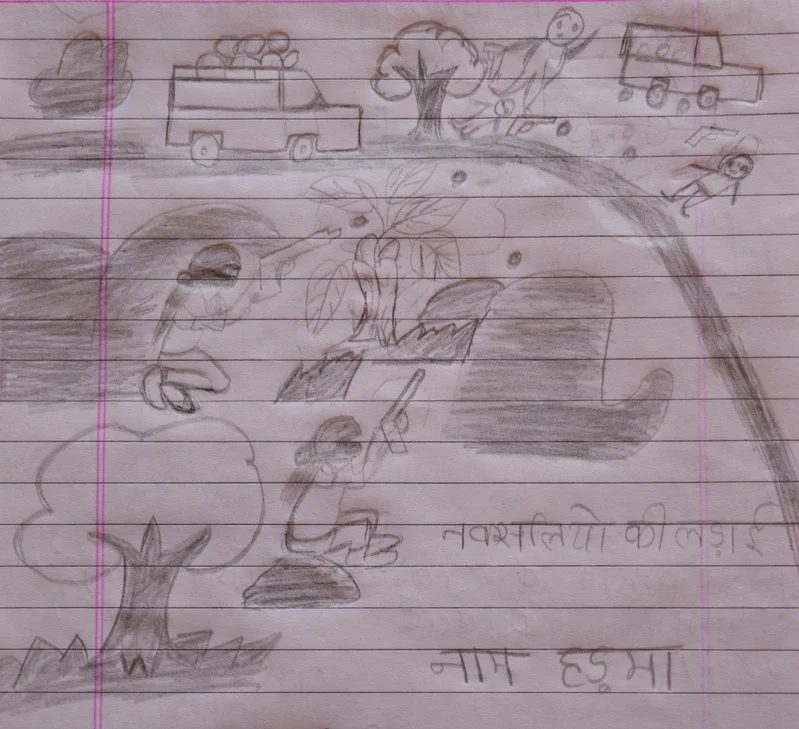 नक्सलियो की लड़ाई
नाम हड़मा